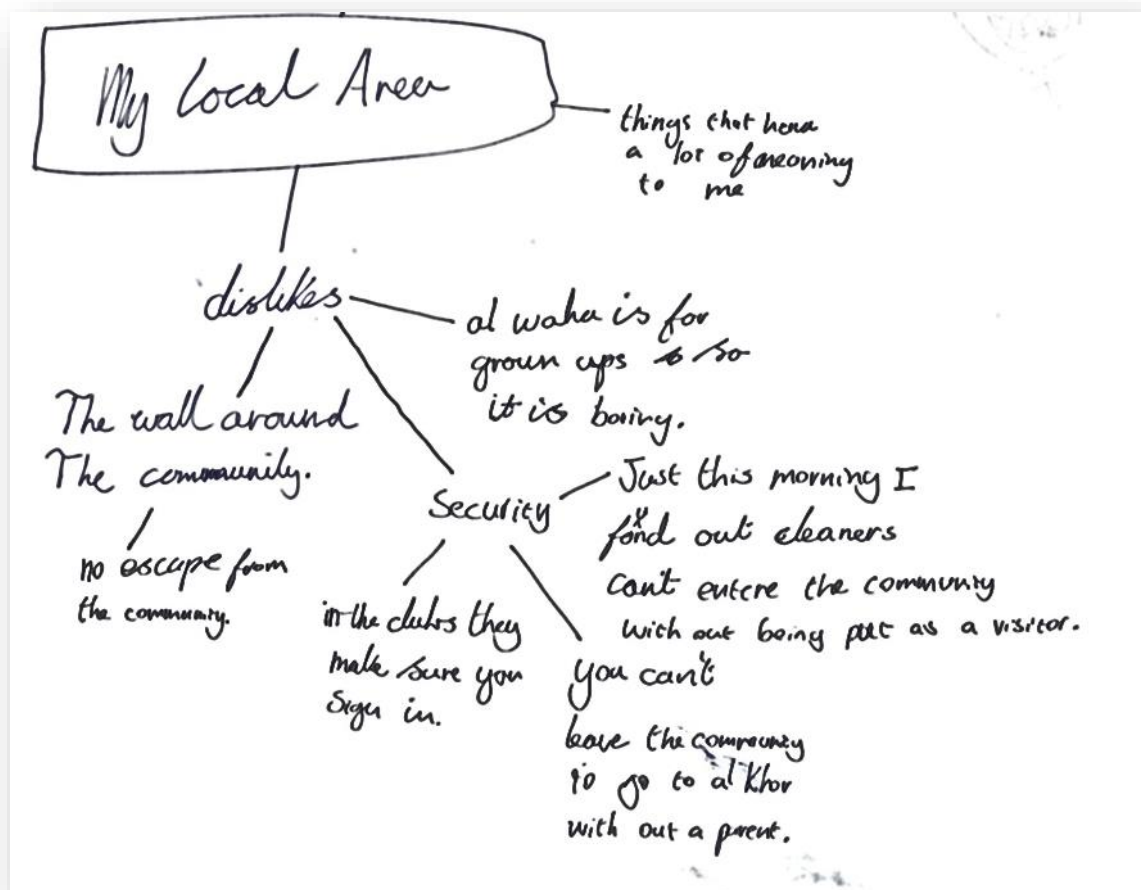 My Local Area
things that have
a lot of meaning
to me
dislikes
al waha is for
grown ups so
it is boring.
The wall around
The community.
no escape from
the community.
Security
Just this morning I
found out cleaners
can't entere the community
with out being put as a visitor.
in the clubs they
make sure you
sign in.
you can't
leave the community
to go to al Khor
with out a parent.